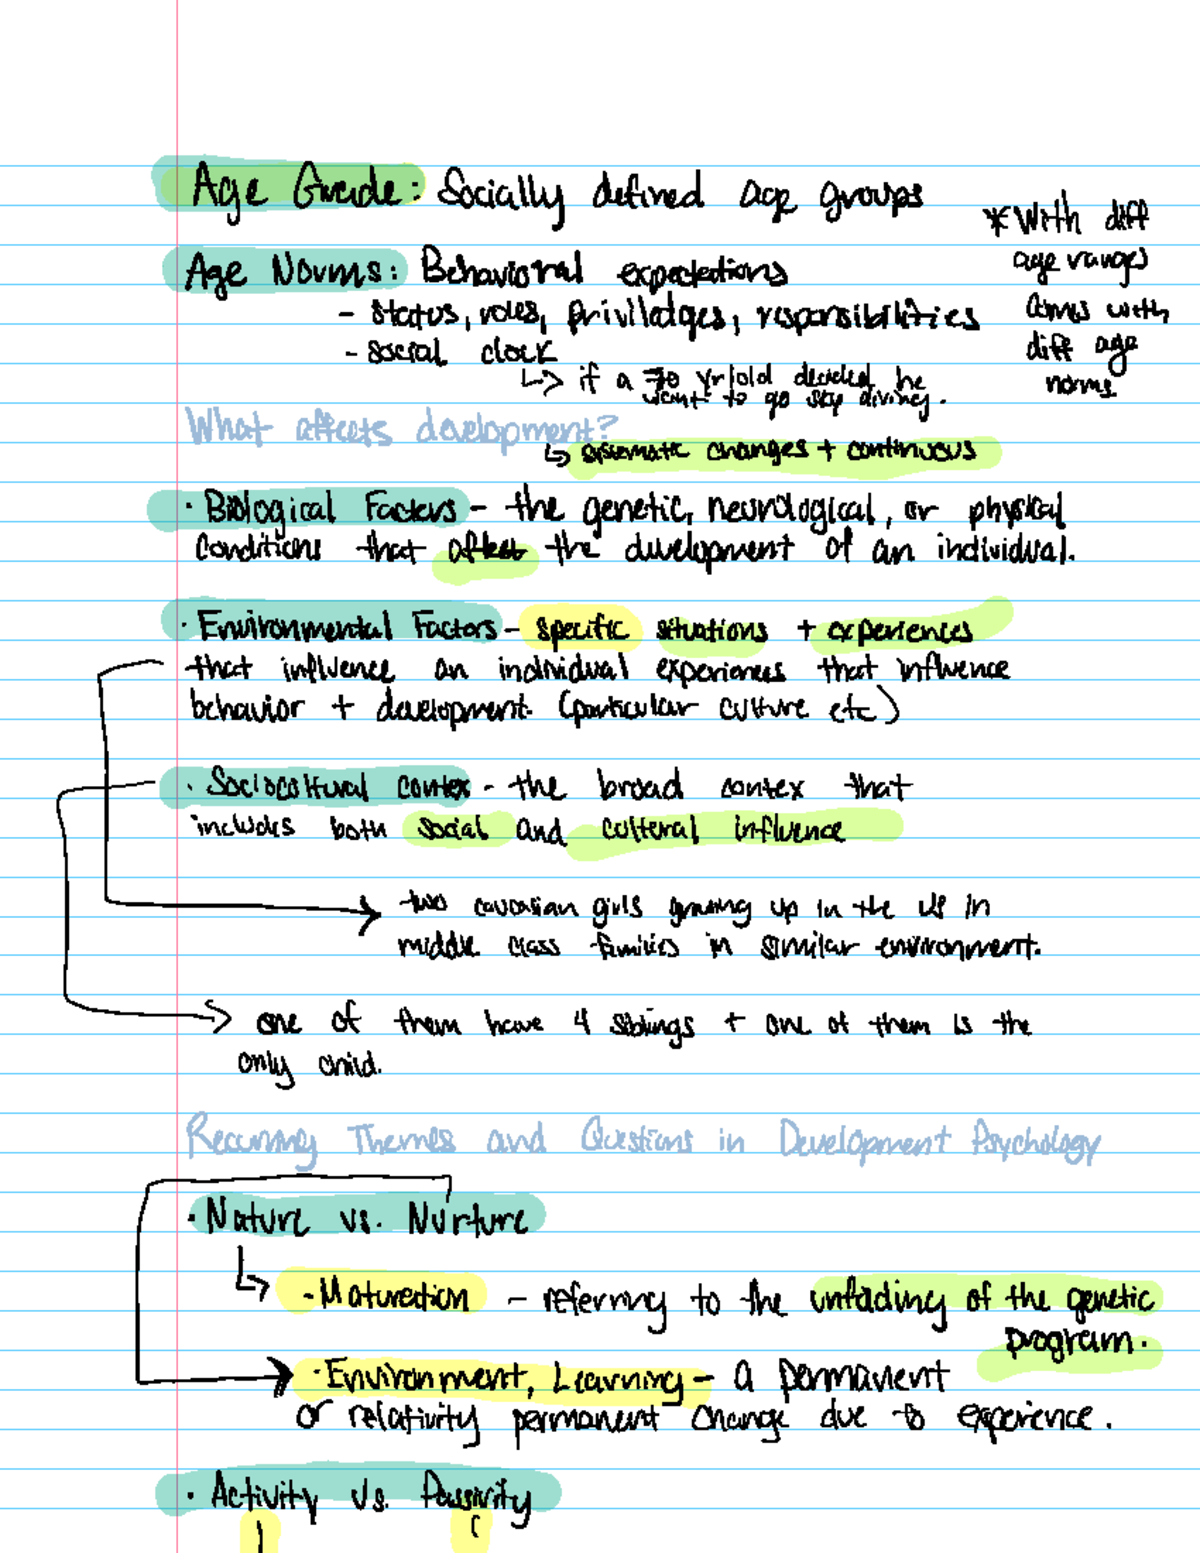 Age Grade: Socially defined age groups
*With diff
age ranges
comes with
diff age
norms.
Age Norms: Behavioral expectations
- status, roles, priviladges, responsibilities
- social clock
↳ if a 70 yr/old decided he
want to go sky diving.
What affects development?
↳ systematic changes + continuous
· Biological Factors - the genetic, neurological, or physical
conditions that affect the development of an individual.
· Environmental Factors - specific situations + experiences
that influence an individual experiences that influence
behavior + development. (particular culture etc)
· Sociocultural contex - the broad contex that
includes both social and cultural influence
→ two caucasian girls growing up in the US in
middle class families in similar environment.
→ one of them have 4 siblings + one of them is the
only child.
Recurring Themes and Questions in Development Psychology
· Nature vs. Nurture
↳ - Maturation - referring to the unfolding of the genetic
program.
→ · Environment, Learning - a permanent
or relativity permanent change due to experience.
· Activity vs. Passivity